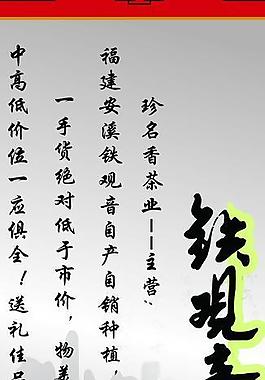 铁观音
珍名香茶业——主营：
福建安溪铁观音自产自销种植，
一手货绝对低于市价，物美
中高低价位一应俱全！送礼佳品